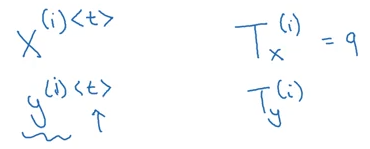 X^{(i)<t>} T_x^{(i)} = 9
y^{(i)<t>} ↑ T_y^{(i)}